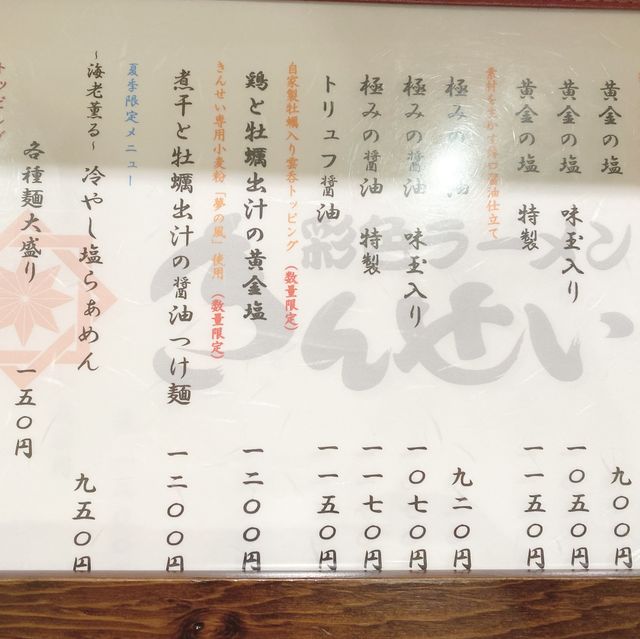 黄金の塩 九〇〇円
黄金の塩 味玉入り 一〇五〇円
黄金の塩 特製 一一五〇円
極みの醤油 九二〇円
極みの醤油 味玉入り 一〇七〇円
極みの醤油 特製 一一七〇円
トリュフ醤油 一一五〇円
自家製牡蠣入り雲呑トッピング（数量限定）
鶏と牡蠣出汁の黄金塩 一二〇〇円
きんせい専用小麦粉「夢の風」使用（数量限定）
煮干と牡蠣出汁の醤油つけ麺 一二〇〇円
夏季限定メニュー
～海老薫る～冷やし塩らぁめん 九五〇円
各種麺大盛り 一五〇円
トッピング
彩色ラーメン
きんせい